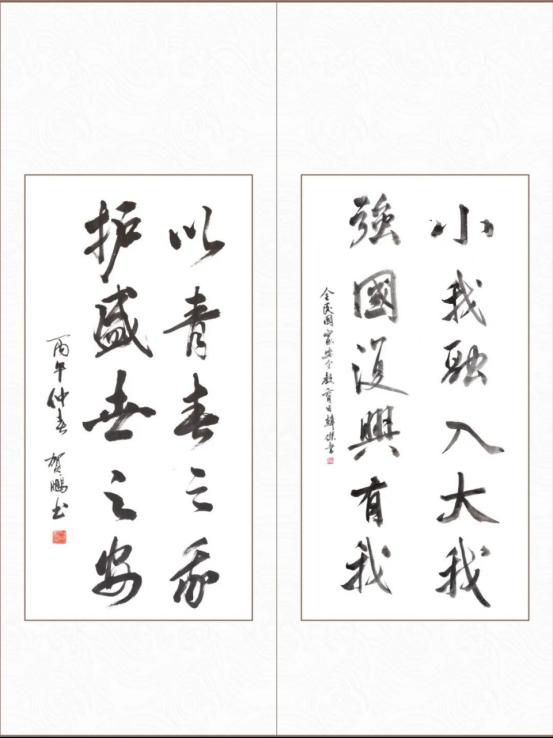 小我融入大我
強國復興有我
全民国家安全教育日韓傑書
以青春之我
护盛世之安
丙午仲春 贺鹏书